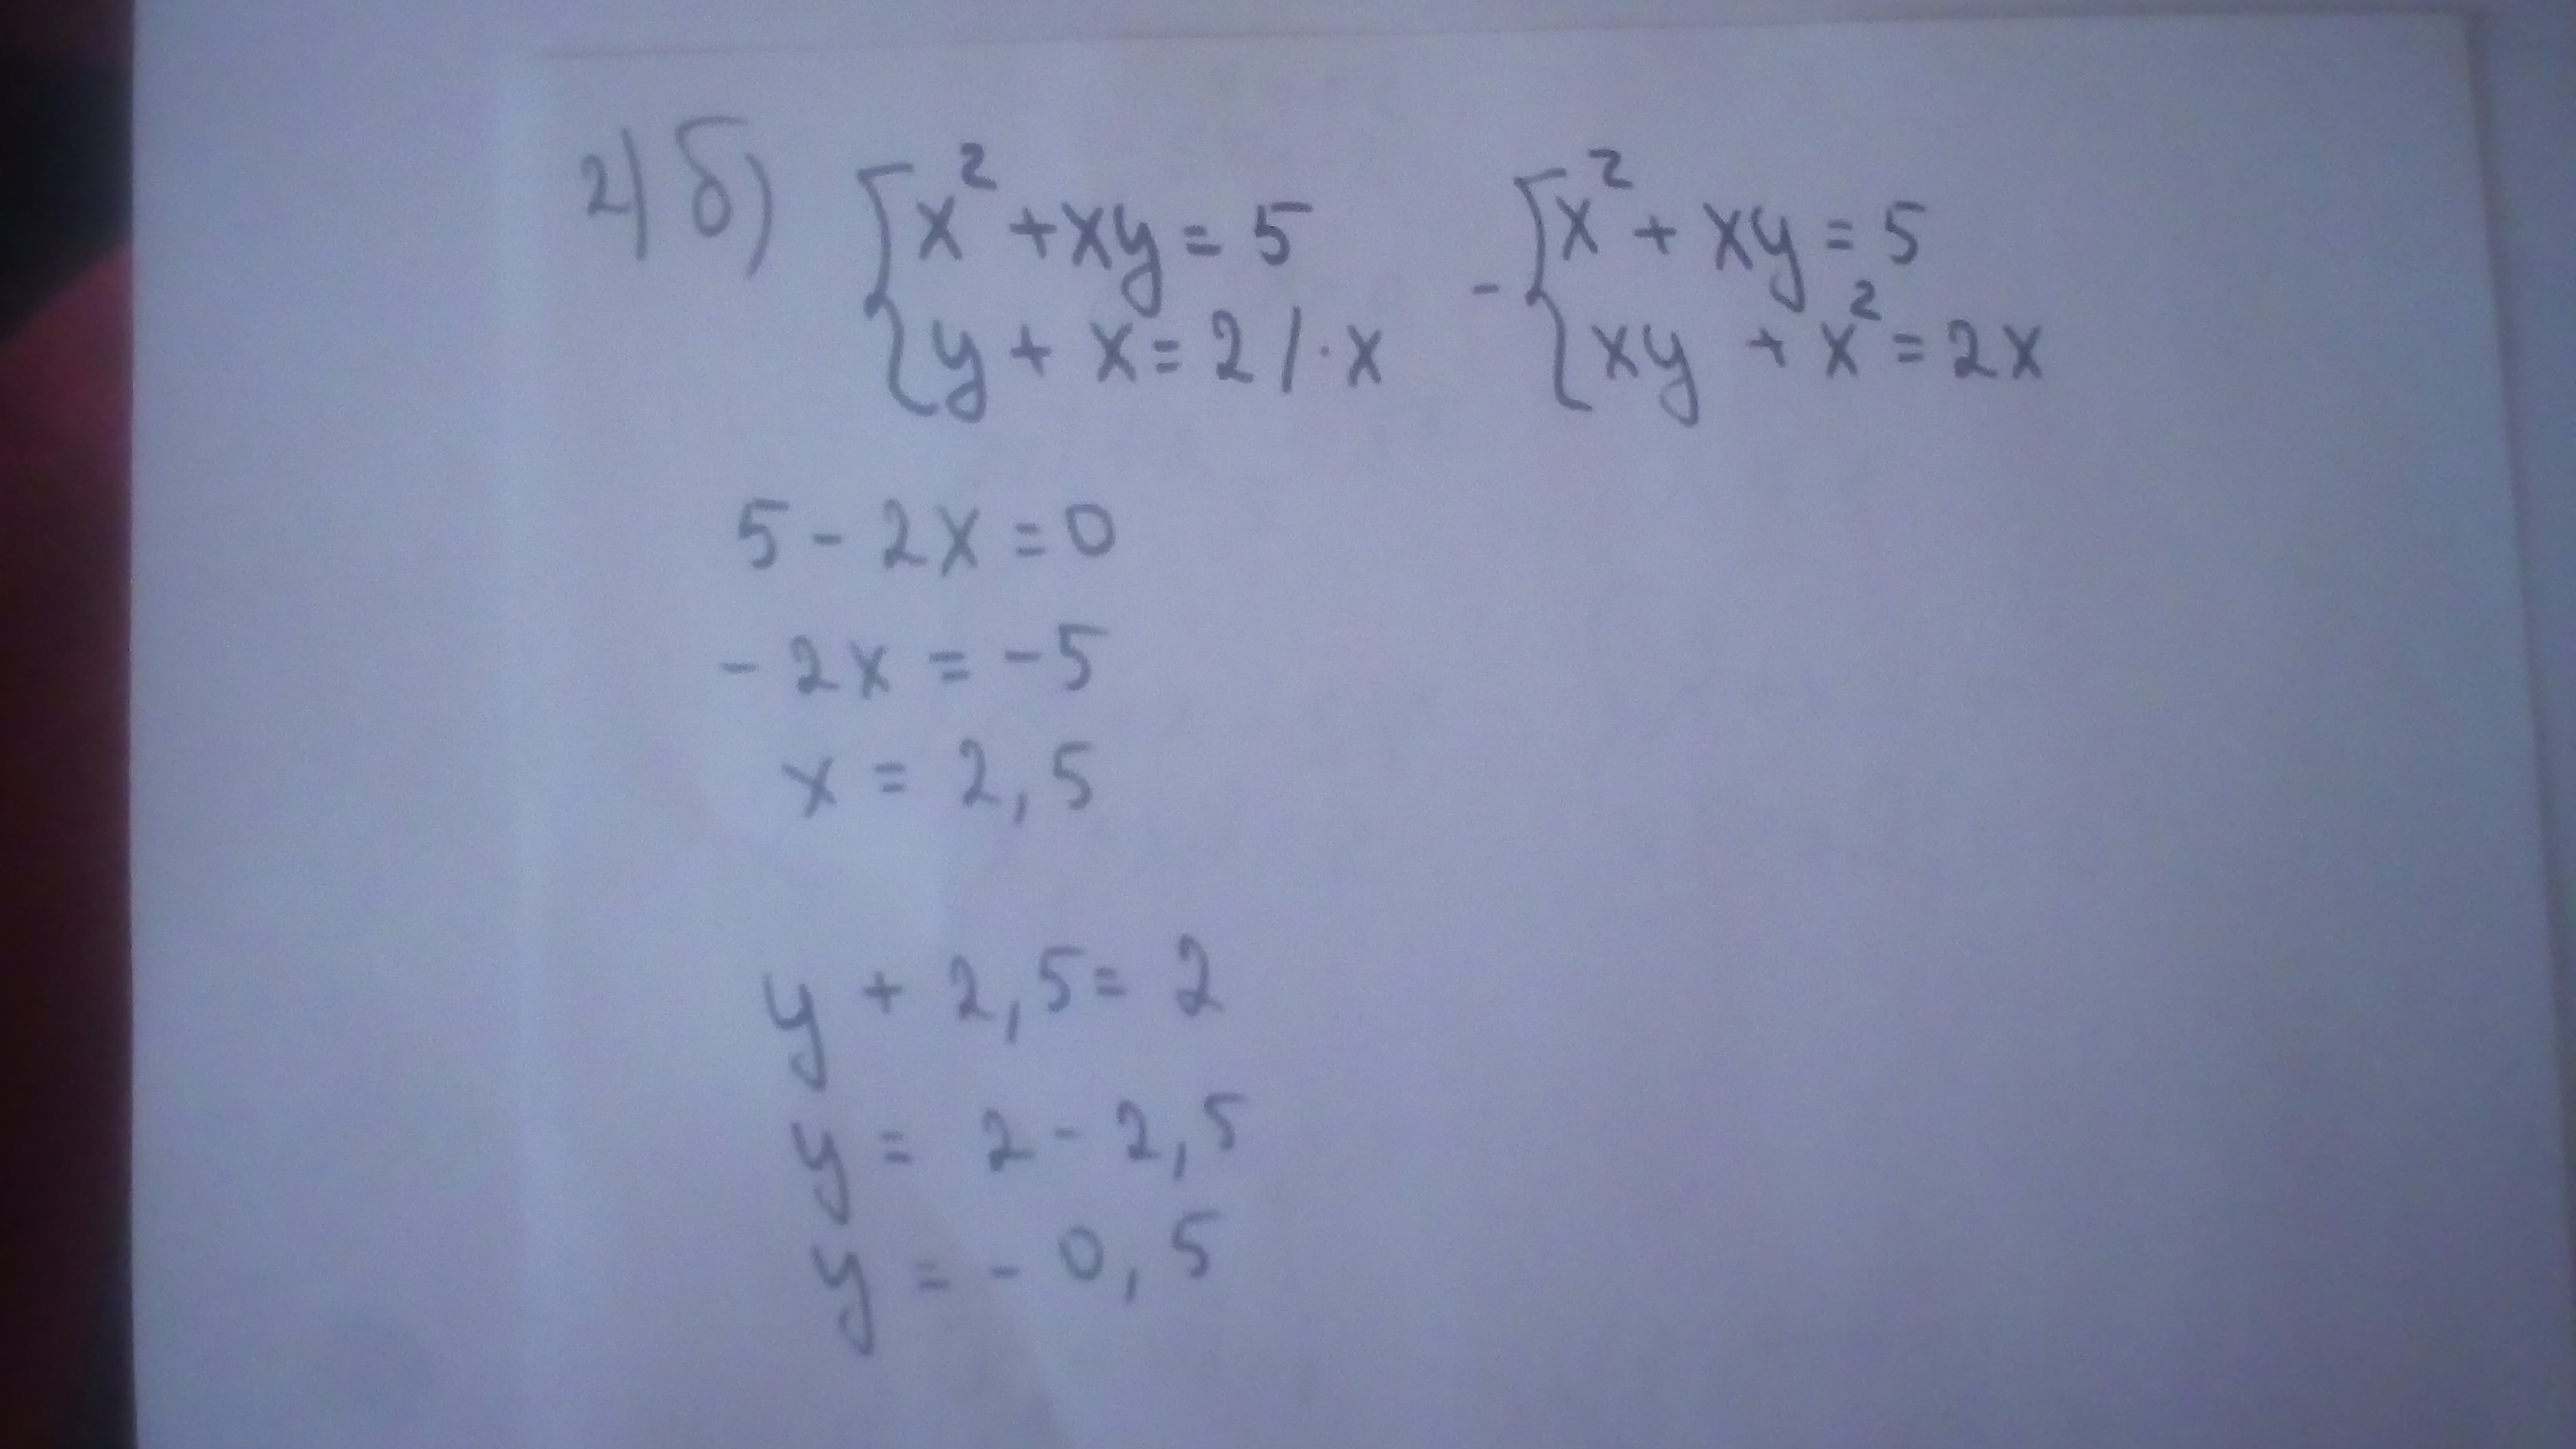 2) б) { x² + xy = 5   - { x² + xy = 5
{ y + x = 2 / · x   { xy + x² = 2x
5 - 2x = 0
- 2x = -5
x = 2,5
y + 2,5 = 2
y = 2 - 2,5
y = - 0,5